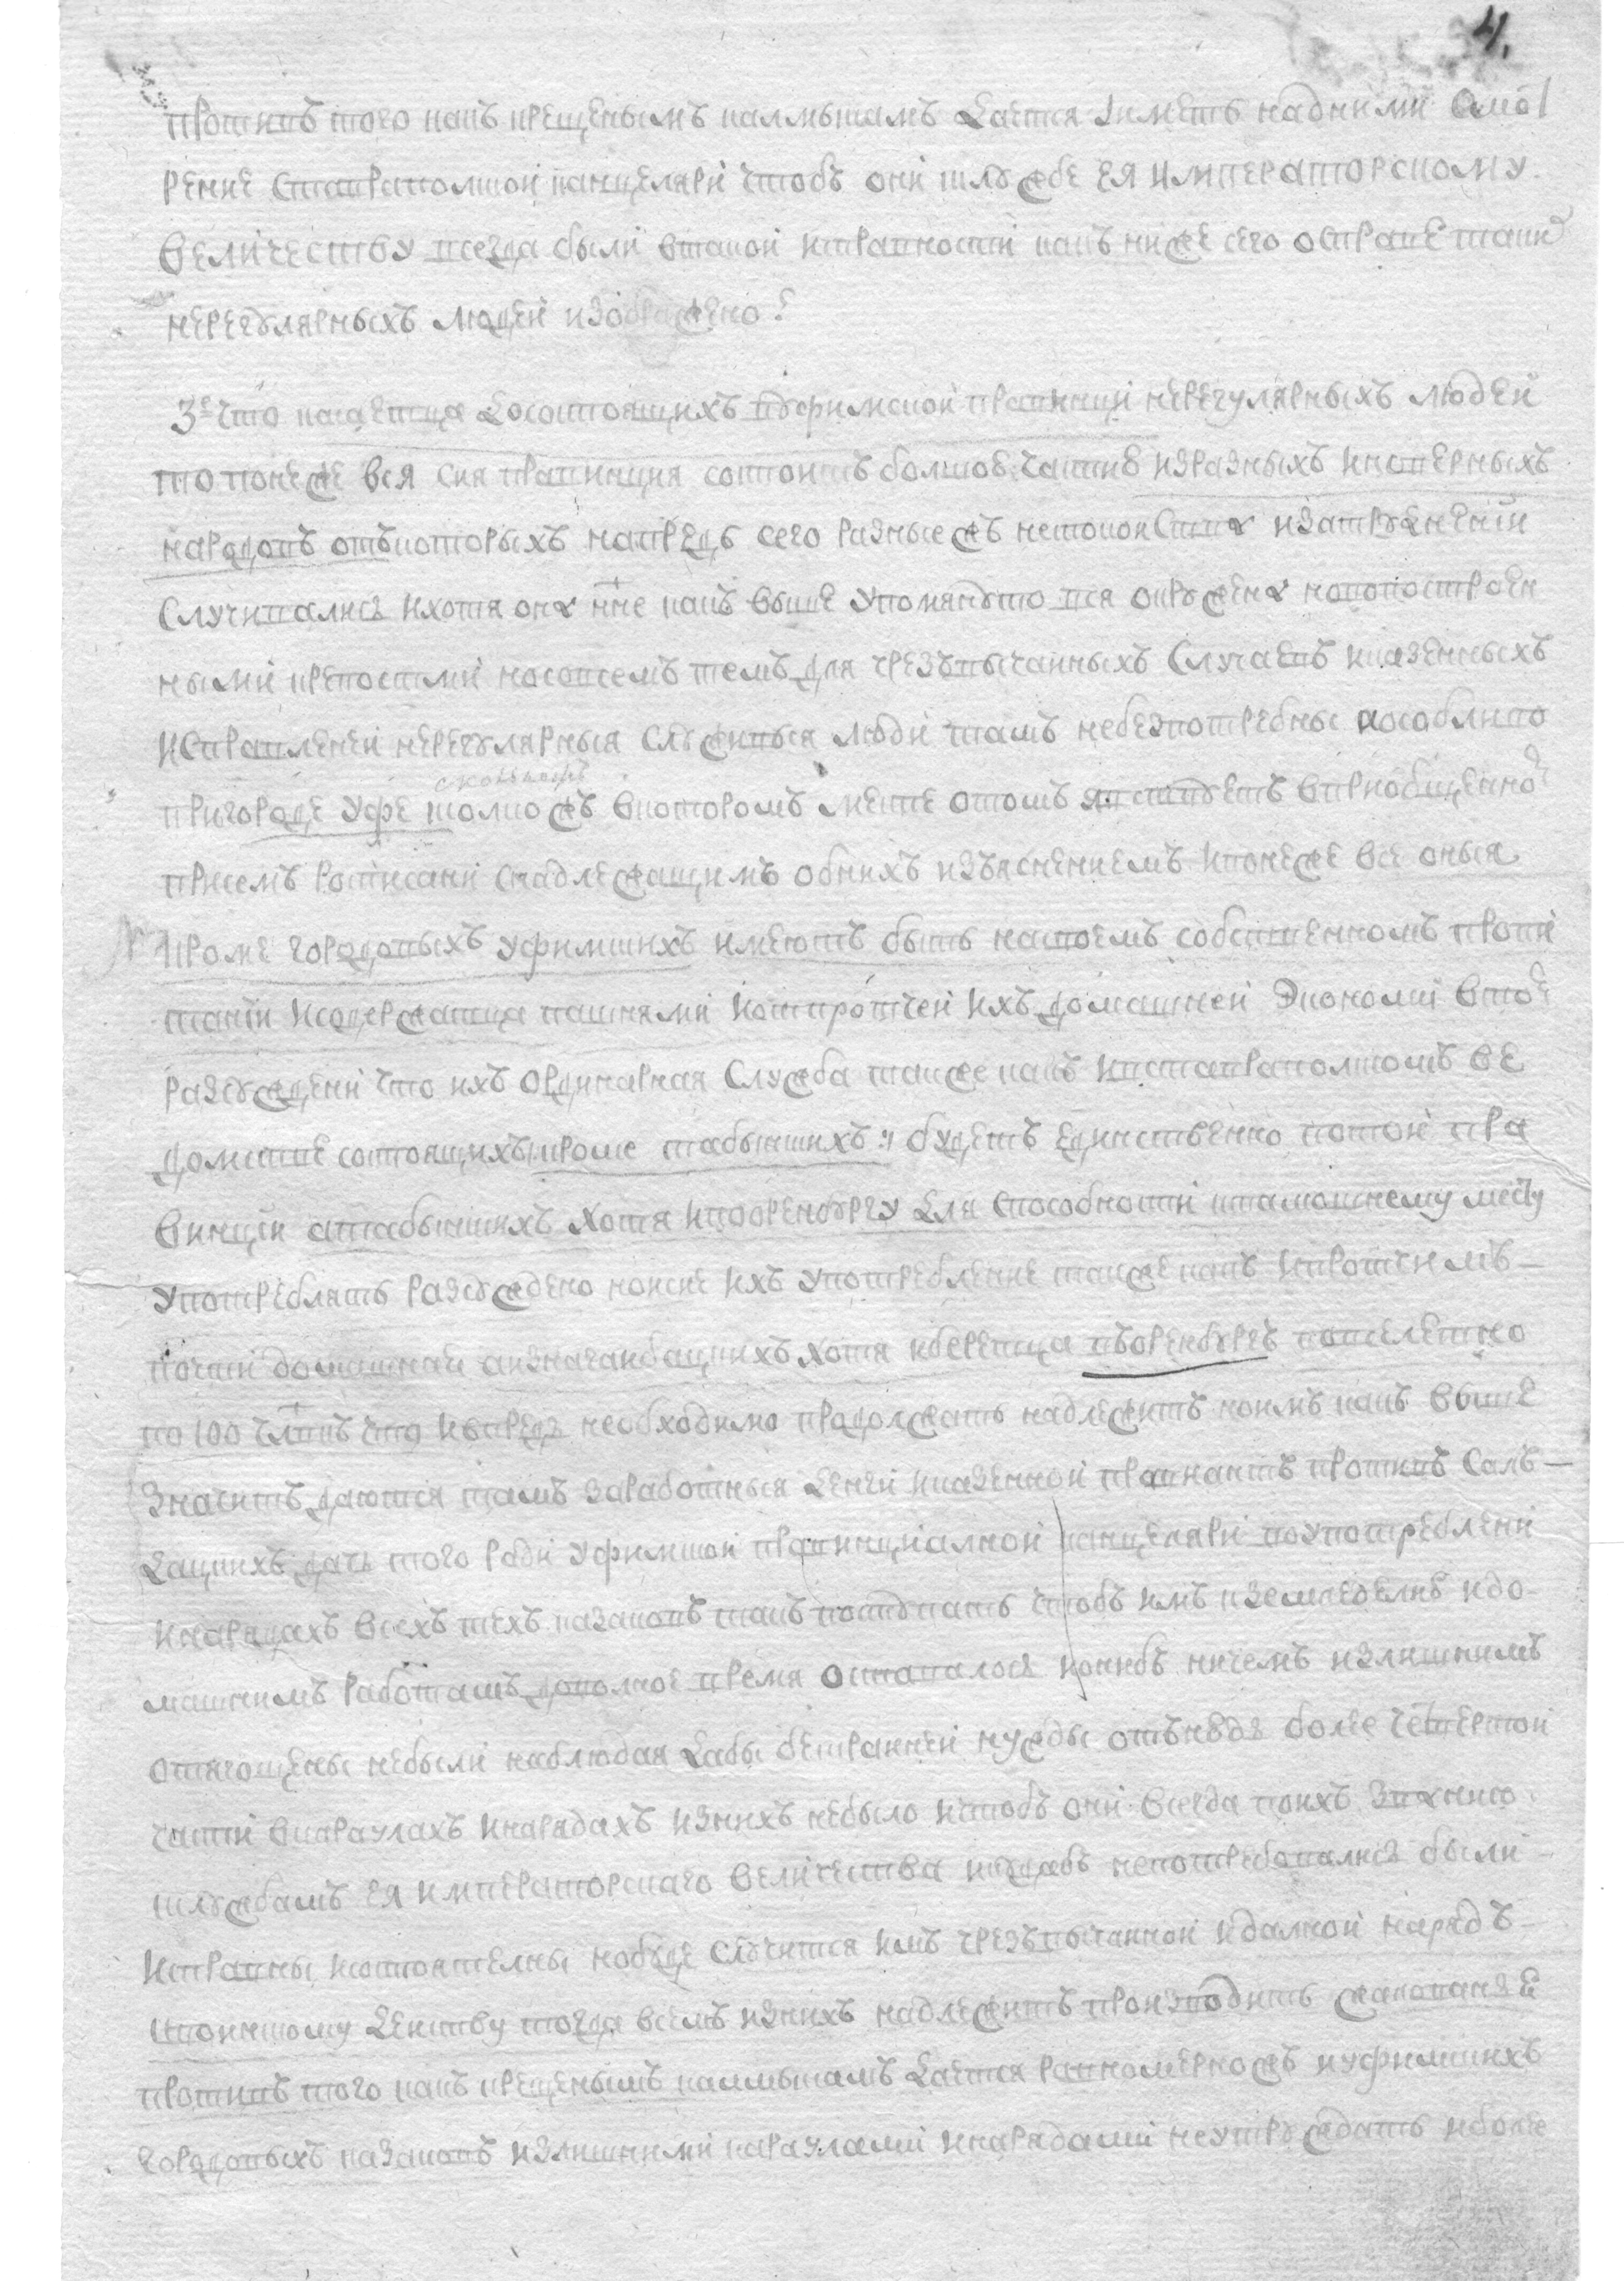 4.
противъ того какъ крещенымъ калмыкамъ дается и иметь надними смот
рение ставрополской канцеляри чтобъ они кслужбе ея императорскому
величеству всегда были втакой исправности какъ ниже сего осправе таки
нерегулярныхъ людей изображено
3е что касается досостоящихъ вуфимской правинци нерегулярныхъ людей
то понеже вся сия правинция состоитъ болшое частию изразныхъ иноверных
народовъ откоторыхъ напредъ сего разныежъ непокойствы изатруднении
случивались ихотя оны нне какъ выше упомянуто вся окружены новопостроен
ными крепостми носовсемъ темъ для чрезвычайныхъ случаевъ иказенныхъ
исправленей нерегулярныя служивыя люди тамъ небезпотребны аособливо
пригороде уфе толкожъ вкоторомъ месте отомъ явствуетъ вприобщенной
присемъ росписани снадлежащимъ обнихъ изъяснениемъ ипонеже все оныя
кроме городовыхъ уфимскихъ имеютъ быть насвоемъ собственномъ пропи
тании исодержатца пашнями иотпротчей ихъ домашней экономии втой
разсуждени что ихъ ординарная служба такжекакъ ивставрополскомъ ве
домстве состоящихъ кроме табынскихъ будетъ единственно потой пра
винции атабынскихъ хотя икооренбургу для способности ктамошнему месту
употреблять разсуждено ноисие ихъ употребление такжекакъ ипротчимъ
почти домашнее аизнагайбацкихъ хотя иберетца воренбургъ повселетно
по 100 члвкъ что ивпредь необходимо продолжать надлежитъ ноимъ какъ выше
значитъ даются тамъ заработныя денги иказенной правиантъ противъ сал
дацкихъ дачь того ради уфимской правинциалной канцеляри поупотреблени
инарядахъ всехъ техъ казаковъ такъ поступать чтобъ имъ кземледелию идо
машнимъ работамъ доволное время оставалося ионибъ ничемъ излишнимъ
отягощены небыли наблюдая дабы бескрайней нужды отнюдь более четвертой
части вкараулахъ инарядахъ изнихъ небыло ичтобъ они всегда поихъ званию
кслужбамъ ея императорскаго величества кудабъ непотребовались были
исправны исостоятелны нобуде случится имъ чрезвычайной идалной нарядъ
ивоинскому действу тогда всемъ изнихъ надлежитъ производить жалованье
противъ того какъ крещенымъ калмыкамъ дается равномерножъ иуфимскихъ
городовыхъ казаковъ излишними караулами инарядами неутруждать иболее